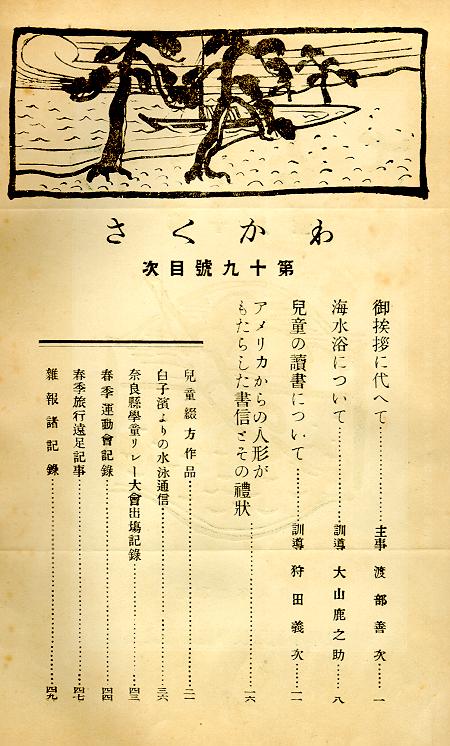 わかくさ
第十九號目次
御挨拶に代へて……主事 渡部善次…一
海水浴について……訓導 大山鹿之助…八
兒童の讀書について……訓導 狩田義次…一一
アメリカからの人形が
もたらした書信とその禮狀……一六
兒童綴方作品……二一
白子濱よりの水泳通信……三六
奈良縣學童リレー大會出場記錄……四三
春季運動會記錄……四四
春季旅行遠足記事……四七
雜報諸記錄……四九